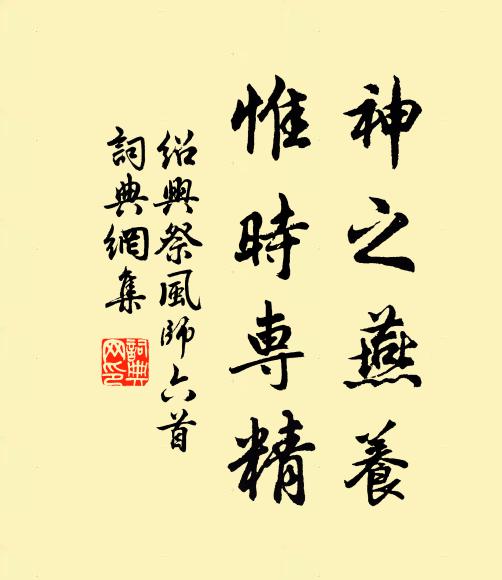 神之燕養
惟時専精
紹興祭風師六首
詞典網集
詞典
网印